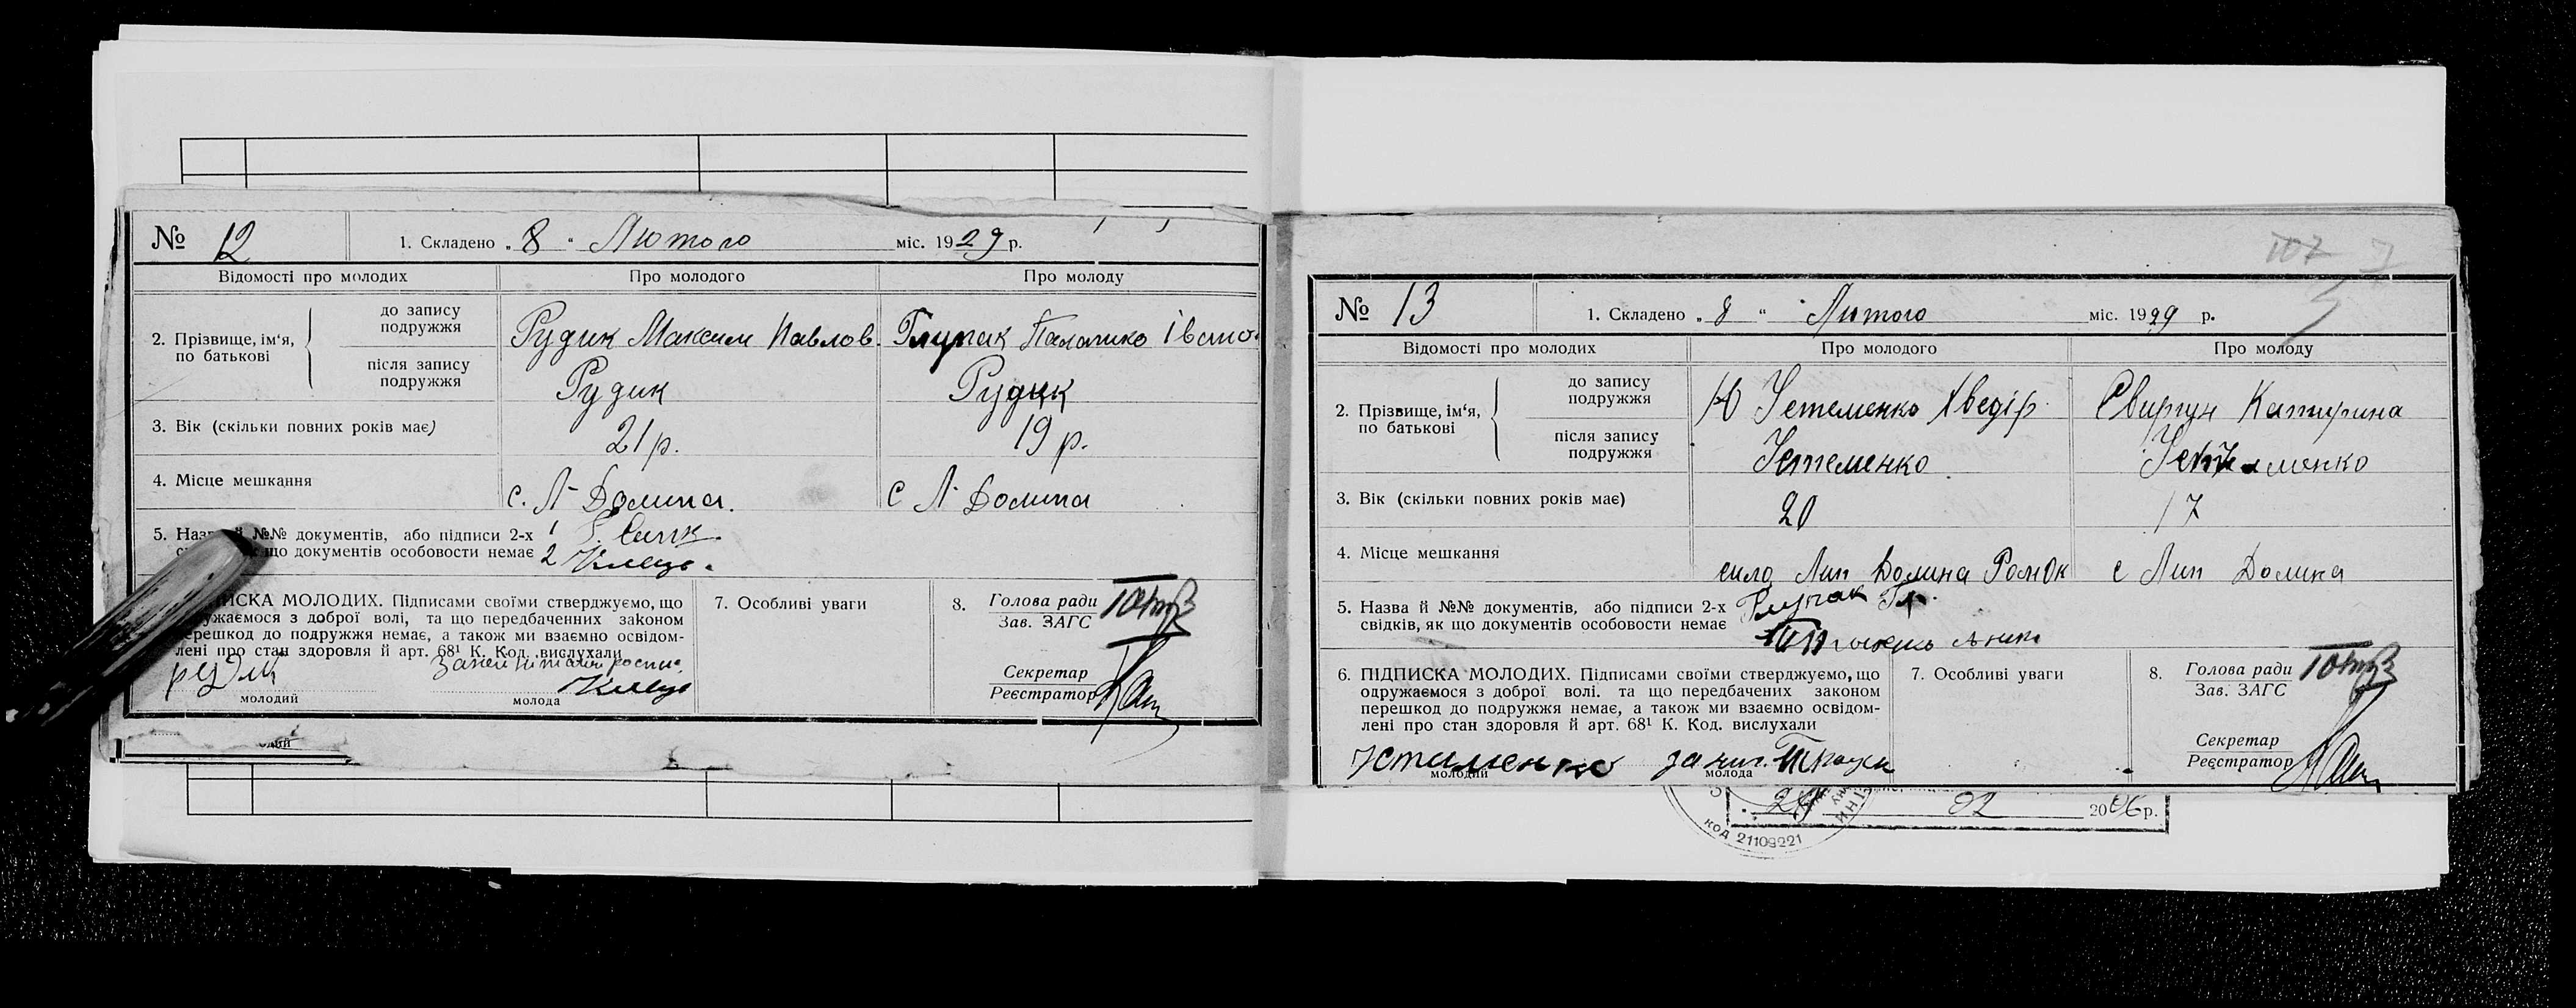 № 12
1. Складено „ 8 “ Лютого міс. 1929 р.
Відомості про молодих
Про молодого
Про молоду
2. Прізвище, ім‘я, по батькові
до запису подружжя
Рудик Максим Павлов.
Глупак Палажко Івано.
після запису подружжя
Рудик
Рудик
3. Вік (скільки повних років має)
21 р.
19 р.
4. Місце мешкання
с. Л- Долина.
с Л- Долина
5. Назва й №№ документів, або підписи 2-х
що документів особовости немає
1
2 Клець.
ПИСКА МОЛОДИХ. Підписами своїми стверджуємо, що
ружаємося з доброї волі, та що передбаченних законом
перешкод до подружжя немає, а також ми взаємно освідом-
лені про стан здоровля й арт. 68¹ К. Код. вислухали
рудик
Клець
молодий
молода
7. Особливі уваги
8. Голова ради
Зав. ЗАГС
Секретар
Реєстратор
одий
107
№ 13
1. Складено „ 8 “ Лютого міс. 1929 р.
Відомості про молодих
Про молодого
Про молоду
2. Прізвище, ім‘я, по батькові
до запису подружжя
Устеменко Хведір
Свиргун Катирина
після запису подружжя
Устеменко
Устеменко
3. Вік (скільки повних років має)
20
17
4. Місце мешкання
село Лип Долина Ромок
с Лип Долина
5. Назва й №№ документів, або підписи 2-х
свідків, як що документів особовости немає
Глупак
6. ПІДПИСКА МОЛОДИХ. Підписами своїми стверджуємо, що
одружаємося з доброї волі. та що передбачених законом
перешкод до подружжя немає, а також ми взаємно освідом-
лені про стан здоровля й арт. 68¹ К. Код. вислухали
Устименко
молодий
молода
7. Особливі уваги
8. Голова ради
Зав. ЗАГС
Секретар
Реєстратор
02 2006 р.
код 21109221